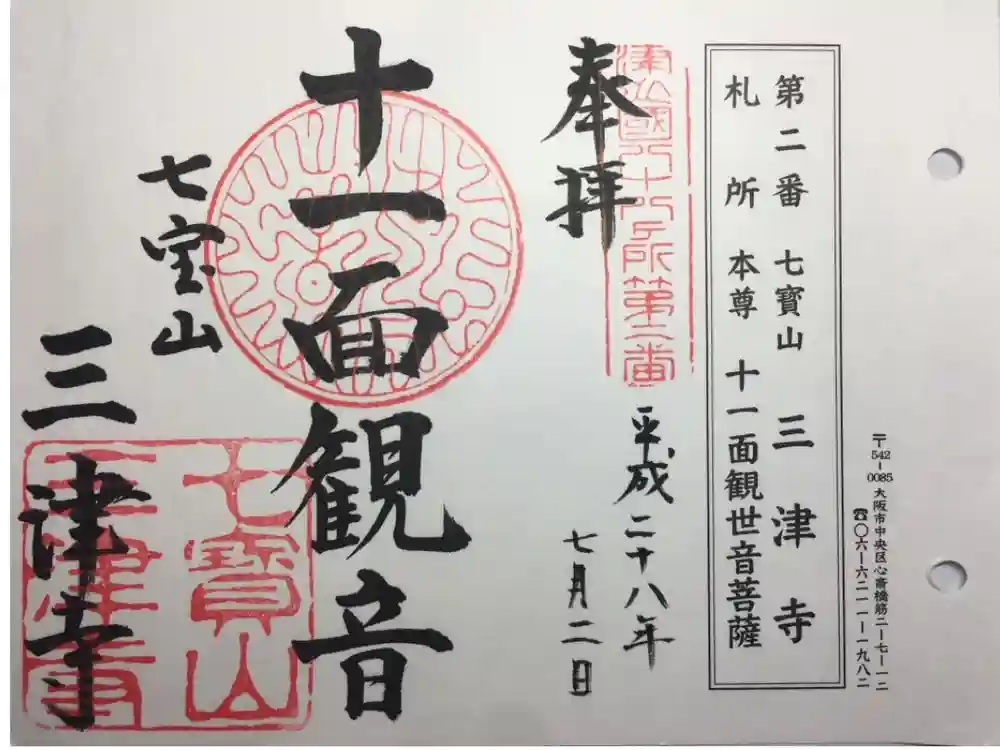 〒542-0085 大阪市中央区心斎橋筋二ー七ー一二
☎〇六ー六二一一ー一九八二
第二番 七寳山 三津寺
札所本尊 十一面観世音菩薩
奉拝
平成二十八年
七月二日
十一面観音
七宝山
三津寺
七寳山
三津寺